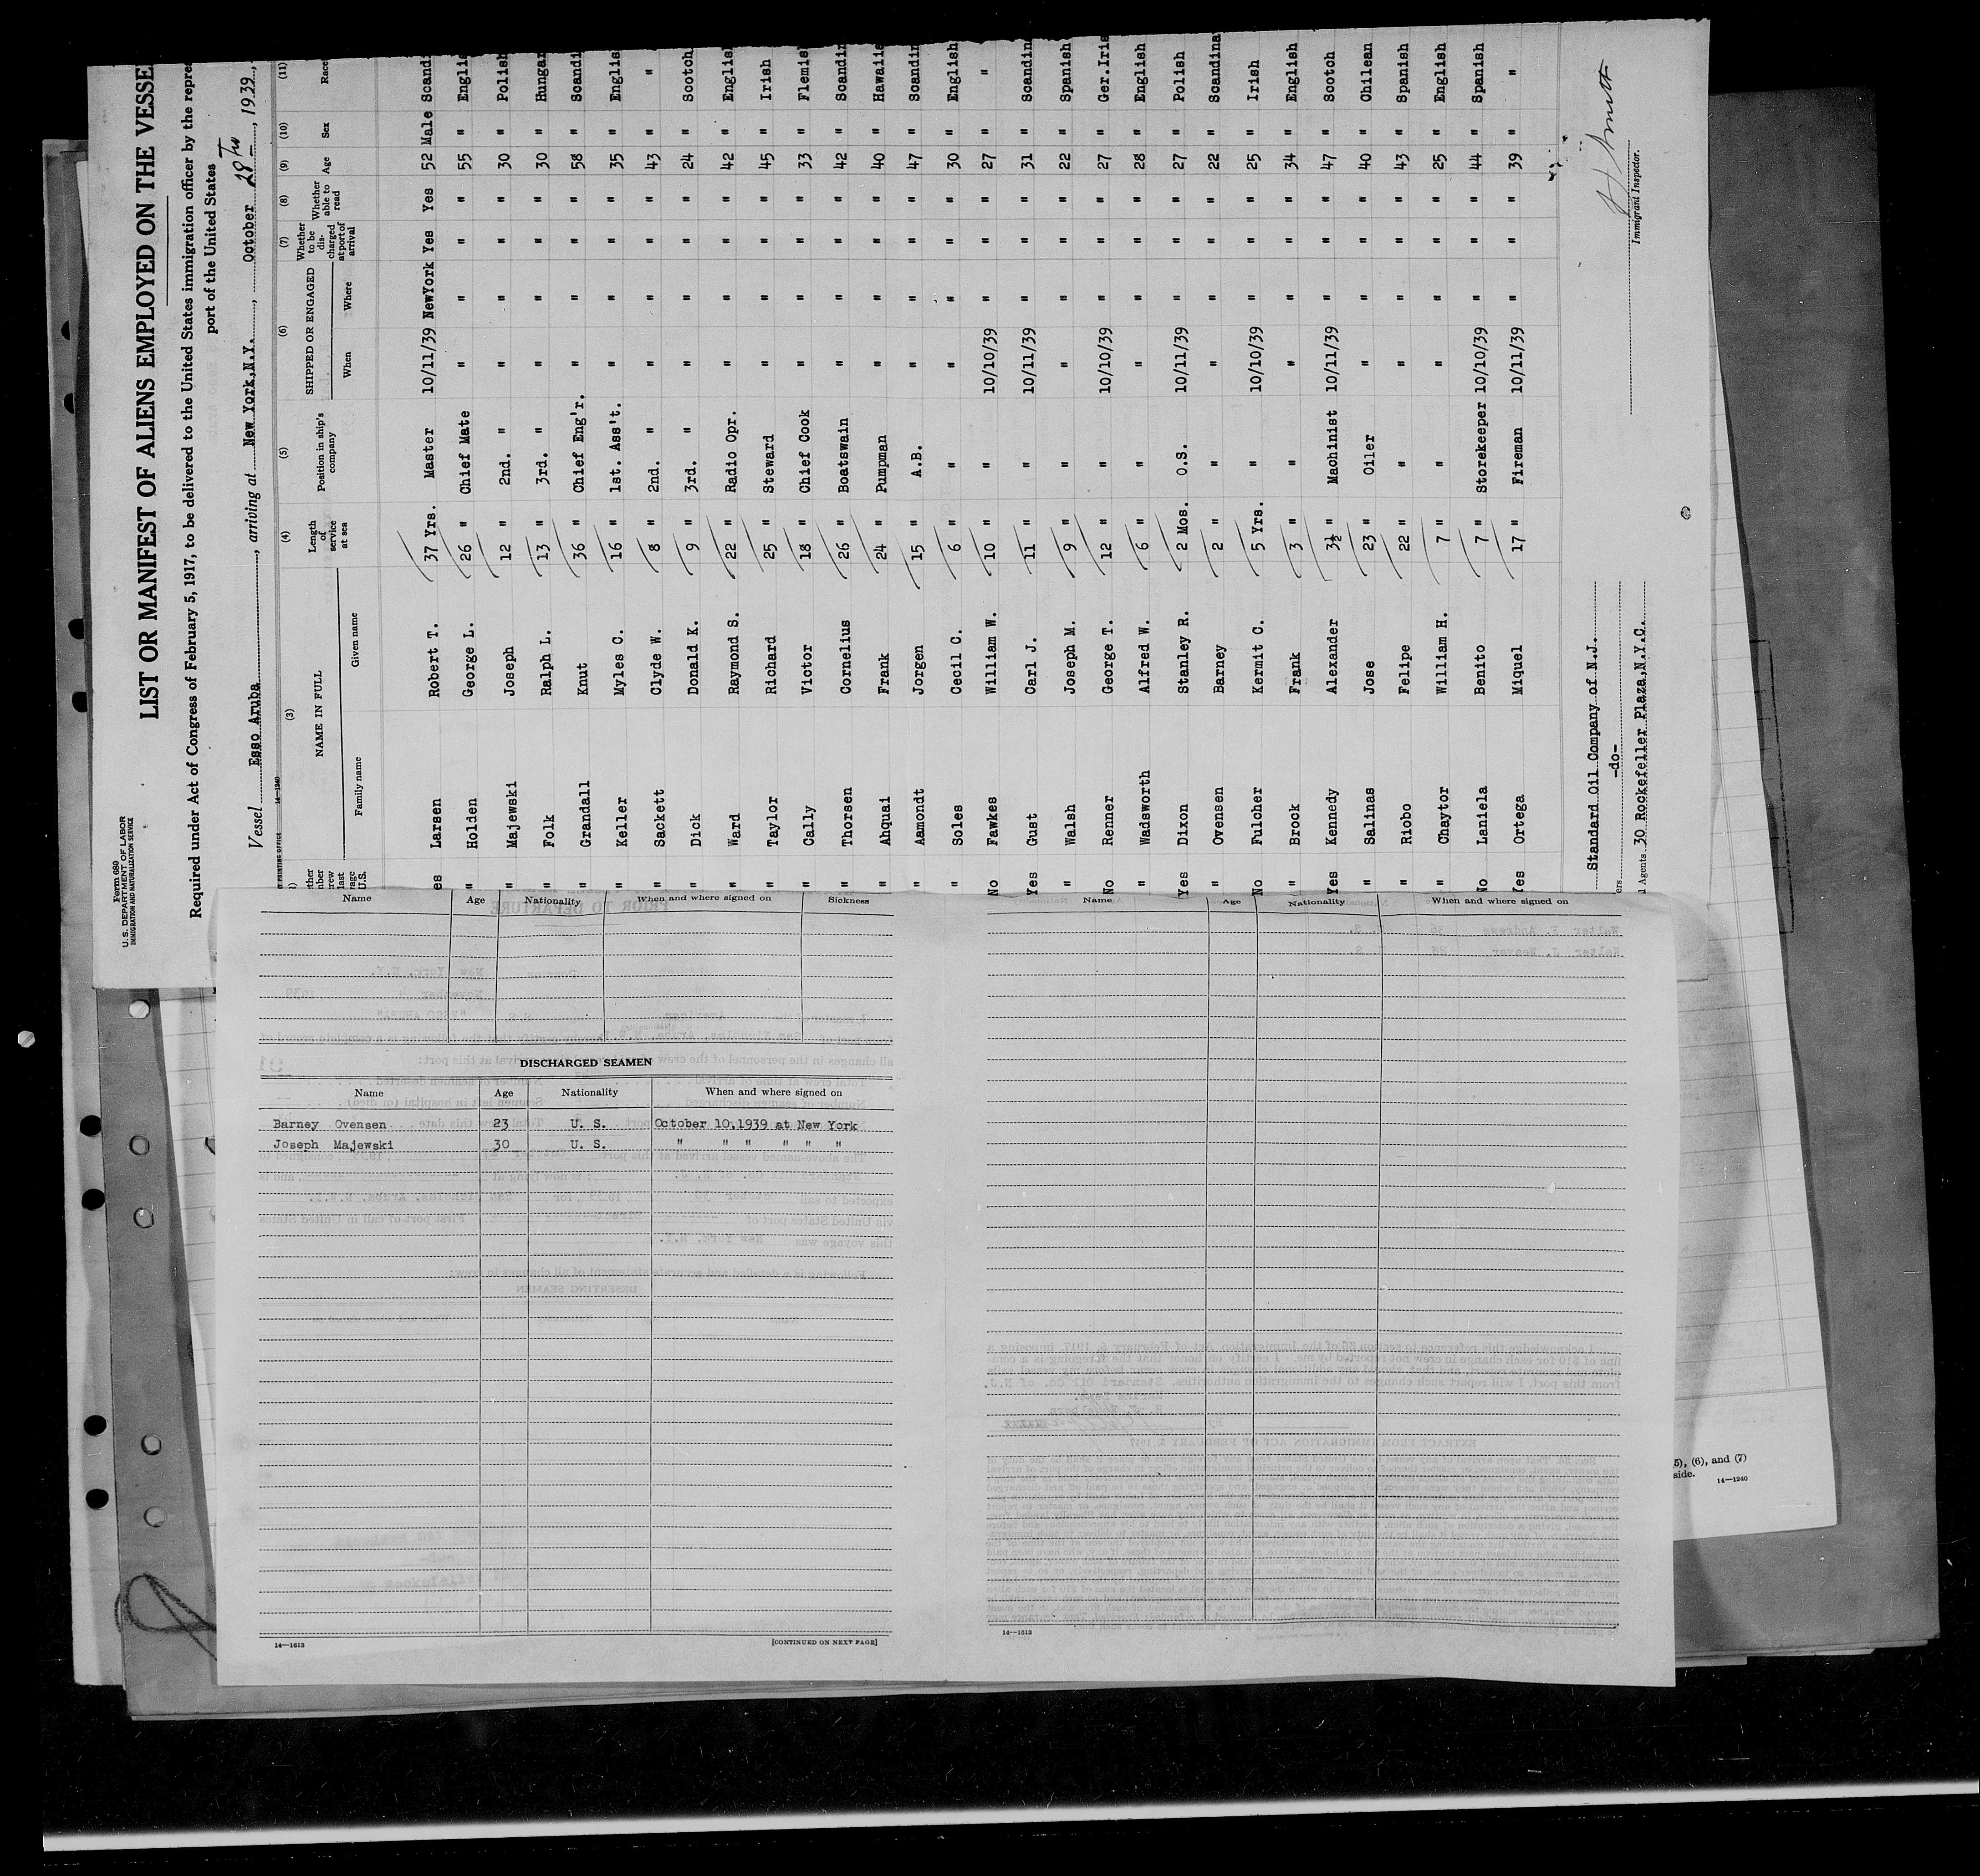 Form 680
U. S. DEPARTMENT OF LABOR
IMMIGRATION AND NATURALIZATION SERVICE
LIST OR MANIFEST OF ALIENS EMPLOYED ON THE VESSE
Required under Act of Congress of February 5, 1917, to be delivered to the United States immigration officer by the repres
port of the United States
Vessel Esso Aruba, arriving at New York, N.Y., October 28TH, 1939,
14—1240
(3) (4) (5) (6) (7) (8) (9) (10) (11)
NAME IN FULL Length of service at sea Position in ship's company SHIPPED OR ENGAGED Whether to be discharged at port of arrival Whether able to read Age Sex Race
Family name Given name When Where
es Larsen Robert T. 37 Yrs. Master 10/11/39 NewYork Yes Yes 52 Male Scandi
" Holden George L. 26 " Chief Mate " " " " 55 " Englis
" Majewski Joseph 12 " 2nd. " " " " " 30 " Polish
" Folk Ralph L. 13 " 3rd. " " " " " 30 " Hungar
" Grandall Knut 36 " Chief Eng'r. " " " " 58 " Scandi
" Keller Myles C. 16 " 1st. Ass't. " " " " 35 " Englis
" Sackett Clyde W. 8 " 2nd. " " " " " 43 " "
" Dick Donald K. 9 " 3rd. " " " " " 24 " Scotch
" Ward Raymond S. 22 " Radio Opr. " " " " 42 " Englis
" Taylor Richard 25 " Steward " " " " 45 " Irish
" Cally Victor 18 " Chief Cook " " " " 33 " Flemis
" Thorsen Cornelius 26 " Boatswain " " " " 42 " Scandin
" Ahquai Frank 24 " Pumpman " " " " 40 " Hawaiia
" Aamondt Jorgen 15 " A.B. " " " " 47 " Scandin
" Soles Cecil C. 6 " " " " " " 30 " English
No Fawkes William W. 10 " " 10/10/39 " " " 27 " "
Yes Gust Carl J. 11 " " 10/11/39 " " " 31 " Scandin
" Walsh Joseph M. 9 " " " " " " 22 " Spanish
No Renner George T. 12 " " 10/10/39 " " " 27 " Ger.Iris
" Wadsworth Alfred W. 6 " " " " " " 28 " English
Yes Dixon Stanley R. 2 Mos. O.S. 10/11/39 " " " 27 " Polish
" Ovensen Barney 2 " " " " " " 22 " Scandina
No Fulcher Kermit C. 5 Yrs. " 10/10/39 " " " 25 " Irish
" Brock Frank 3 " " " " " " 34 " English
Yes Kennedy Alexander 3½ " Machinist 10/11/39 " " " 47 " Scotch
" Salinas Jose 23 " Oiler " " " " 40 " Chilean
" Riobo Felipe 22 " " " " " " 43 " Spanish
" Chaytor William H. 7 " " " " " " 25 " English
No Laniela Benito 7 " Storekeeper 10/10/39 " " " 44 " Spanish
Yes Ortega Miquel 17 " Fireman 10/11/39 " " " 39 " "
Standard Oil Company of N.J.
ers -do-
l Agents 30 Rockefeller Plaza,N.Y.C.
Immigrant Inspector.
Name Age Nationality When and where signed on Sickness
DISCHARGED SEAMEN
Name Age Nationality When and where signed on
Barney Ovensen 23 U. S. October 10,1939 at New York
Joseph Majewski 30 U. S. " " " " " "
14—1613 [CONTINUED ON NEXT PAGE]
Name Age Nationality When and where signed on
14—1613
5), (6), and (7)
side.
14—1240